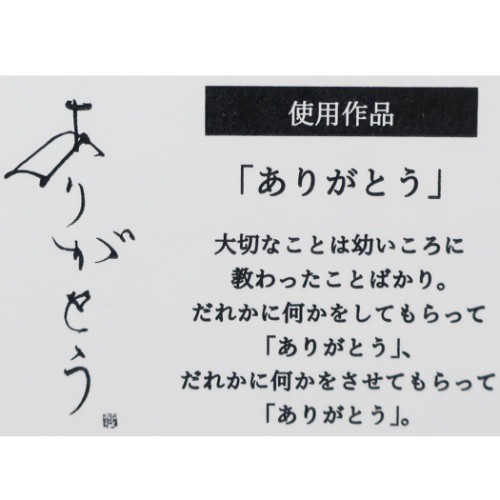 ありがとう
使用作品
「ありがとう」
大切なことは幼いころに
教わったことばかり。
だれかに何かをしてもらって
「ありがとう」、
だれかに何かをさせてもらって
「ありがとう」。